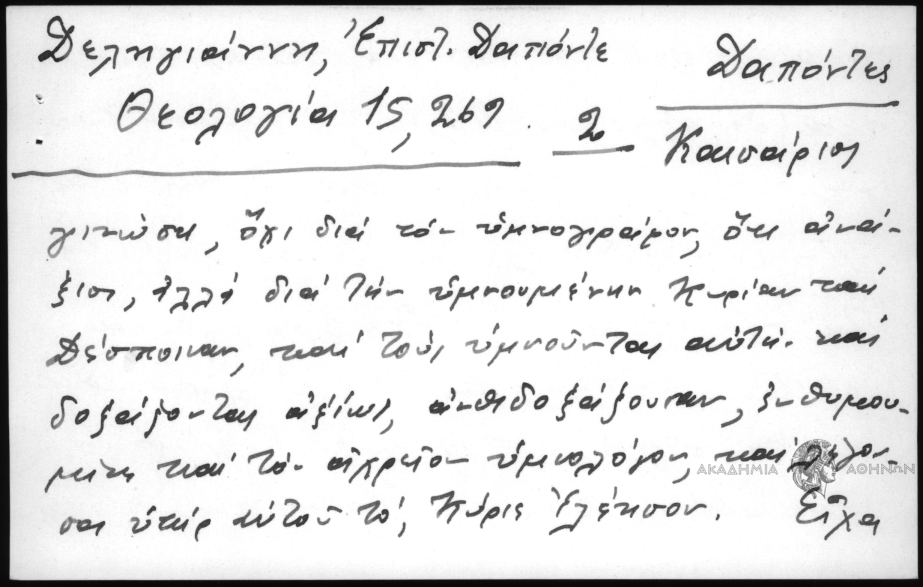 Δεληγιάννη, Ἐπιστ. Δαπόντε
Δαπόντες
Θεολογία 15, 269. 2
Καισάριος
γινώση, ὄχι διά τόν ὑμνογράφον, ὅτι ἀνά-
ξιος, ἀλλά διά τήν ὑμνουμένην Κυρίαν καί
Δέσποιναν, καί τούς ὑμνοῦντας αὐτήν καί
δοξάζοντας ἀξίως, ἀντιδοξάζουσαν, ἐνθυμου-
μένη καί τόν ἀχρεῖον ὑμνολόγον, καί λέγου-
σαι ὑπέρ αὐτοῦ τό, Κύριε Ἐλέησον. Εἶχα
ΑΚΑΔΗΜΙΑ ΑΘΗΝΩΝ